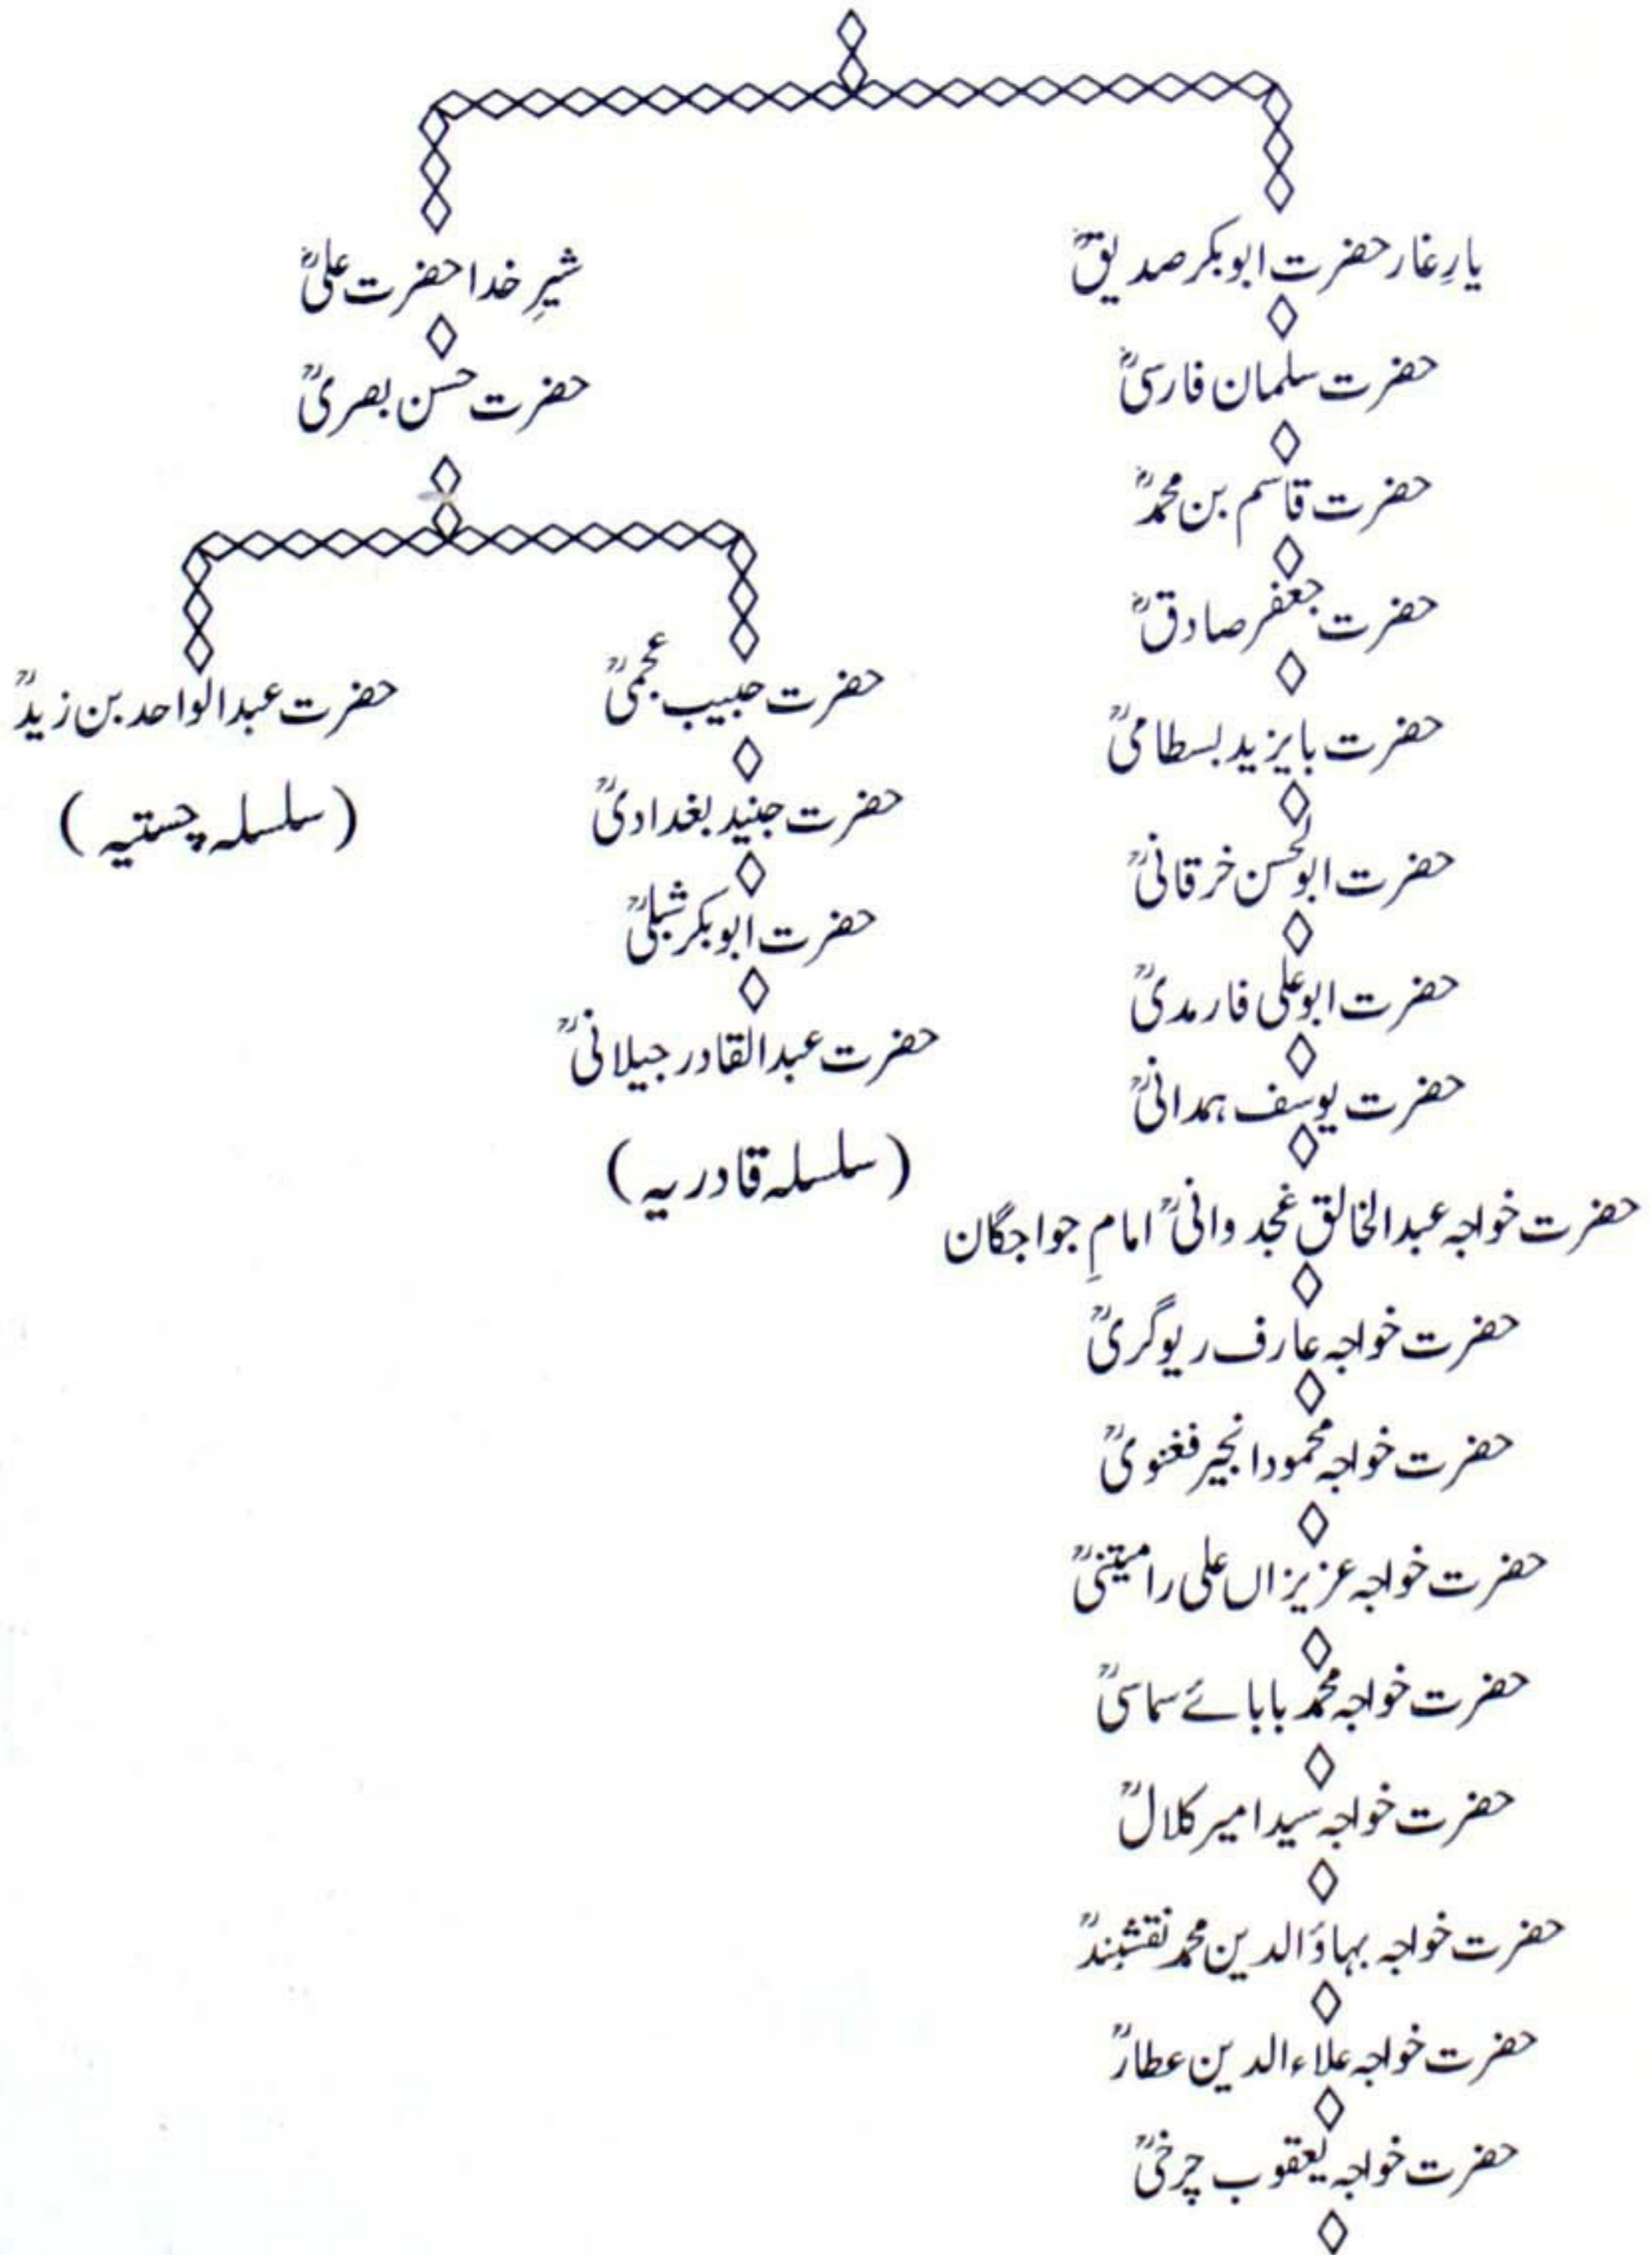 یارِغار حضرت ابوبکر صدیقؓ
حضرت سلمان فارسیؓ
حضرت قاسم بن محمدؓ
حضرت جعفر صادقؓ
حضرت بایزید بسطامیؒ
حضرت ابوالحسن خرقانیؒ
حضرت ابوعلی فارمدیؒ
حضرت یوسف ہمدانیؒ
حضرت خواجہ عبدالخالق غجدوانیؒ امامِ جواجگان
حضرت خواجہ عارف ریوگریؒ
حضرت خواجہ محمود انجیر فغنویؒ
حضرت خواجہ عزیزاں علی رامیتنیؒ
حضرت خواجہ محمد بابائے سماسیؒ
حضرت خواجہ سید امیر کلالؒ
حضرت خواجہ بہاؤالدین محمد نقشبندؒ
حضرت خواجہ علاءالدین عطارؒ
حضرت خواجہ یعقوب چرخیؒ
شیرِ خدا حضرت علیؓ
حضرت حسن بصریؒ
حضرت حبیب عجمیؒ
حضرت جنید بغدادیؒ
حضرت ابوبکر شبلیؒ
حضرت عبدالقادر جیلانیؒ
(سلسلہ قادریہ)
حضرت عبدالواحد بن زیدؒ
(سلسلہ چستیہ)